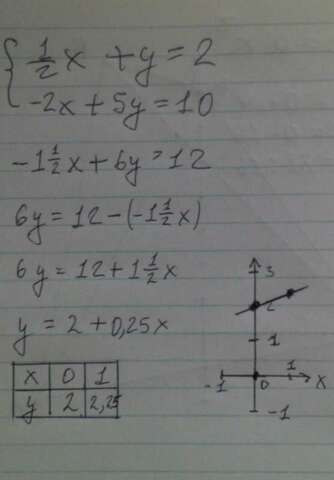 1/2 x + y = 2
-2x + 5y = 10
-1 1/2 x + 6y = 12
6y = 12 - (-1 1/2 x)
6y = 12 + 1 1/2 x
y = 2 + 0,25x
x 0 1
y 2 2,25
3
2
1
-1 0 1 x
-1